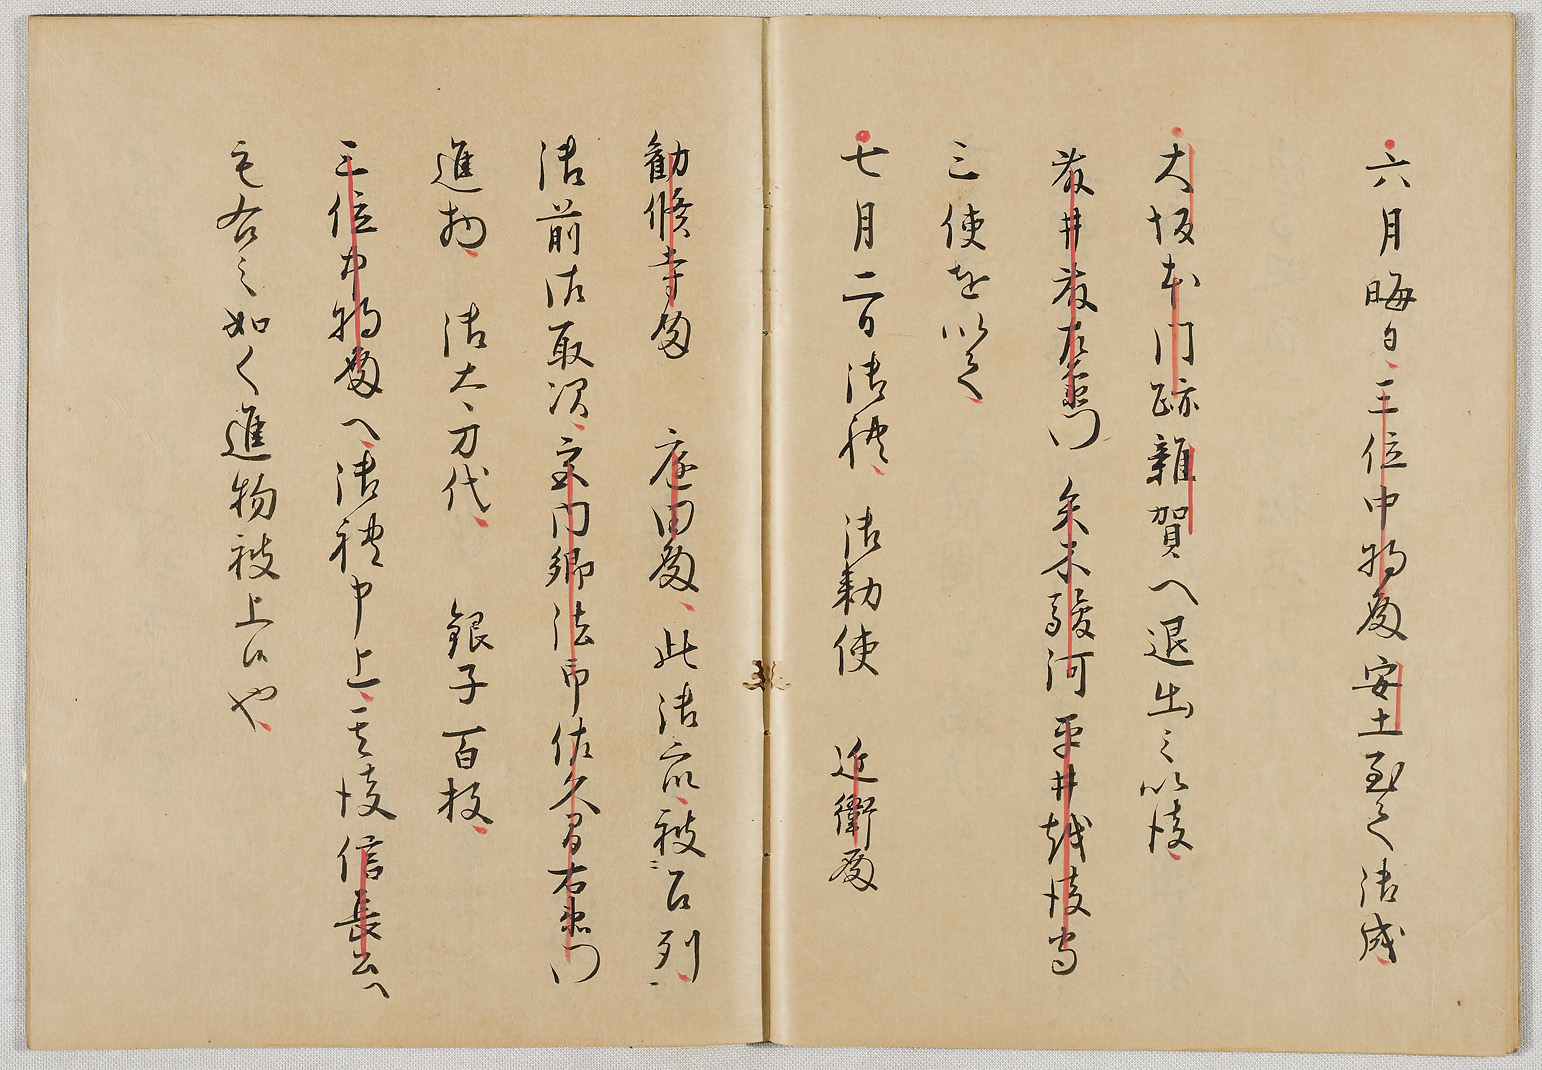 六月晦日三位中将殿安土至て御成
大坂本門跡雑賀へ退出之以後
藤井藤左衛門矢木駿河平井越後守
三使を以て
七月二日御礼御勅使 近衛殿
勧修寺殿 庭田殿此御衆被召列
御前御取次宮内卿法印佐久間右衛門
進物 御太刀代 銀子百枚
三位中将殿へ御礼申上其後信長公へ
も右之如く進物被上候や